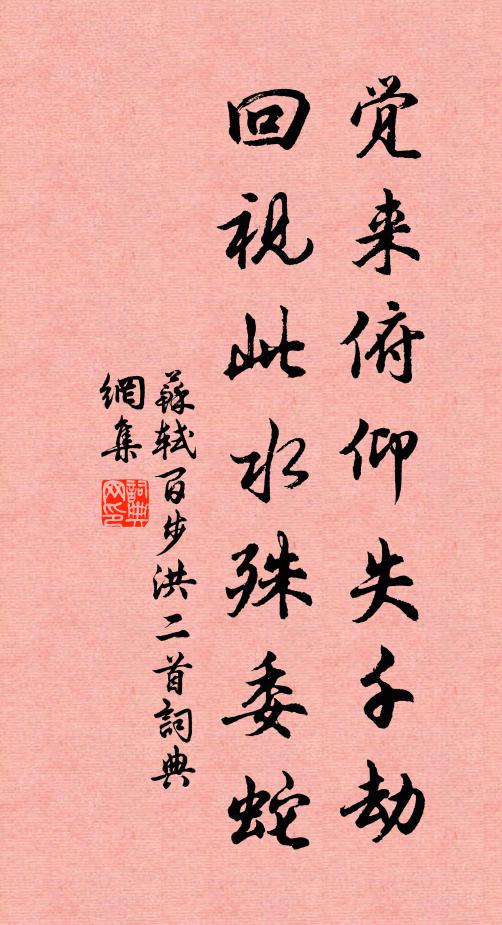 觉来俯仰失千劫
回视此水殊委蛇
蘇軾百步洪二首詞典
網集
詞典
网印